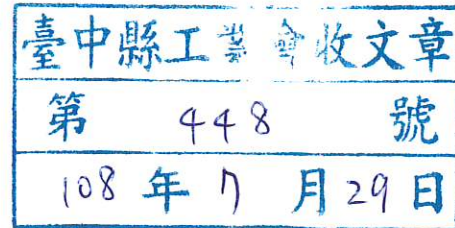 臺中縣工業會收文章
第 448 號
108 年 7 月 29 日